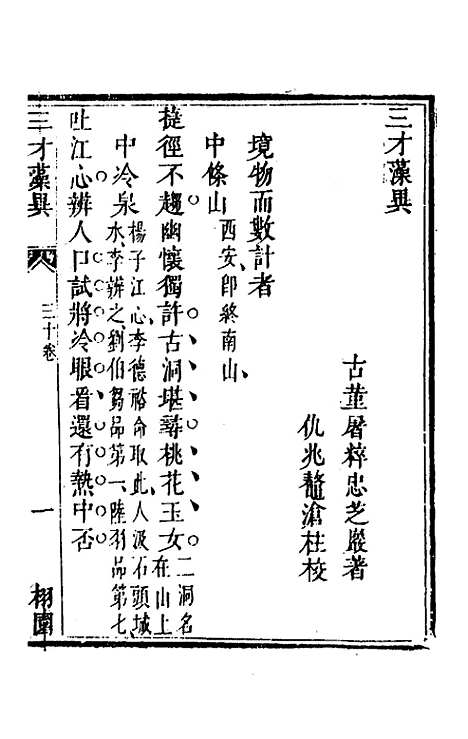 三才藻異
古董屠粹忠芝巖著
仇兆鼇滄柱校
境物而數計者
中條山 西安、卽終南山、
捷徑不趨幽懷獨許古洞堪尋桃花玉女 二洞名在山上
中泠泉 楊子江心、李德裕命取此、人汲石頭城水、李辨之、劉伯芻品第一、陸羽品第七、
吐江心辨人口試將冷眼看還有熱中否
三才藻異
三十卷
一
栩園